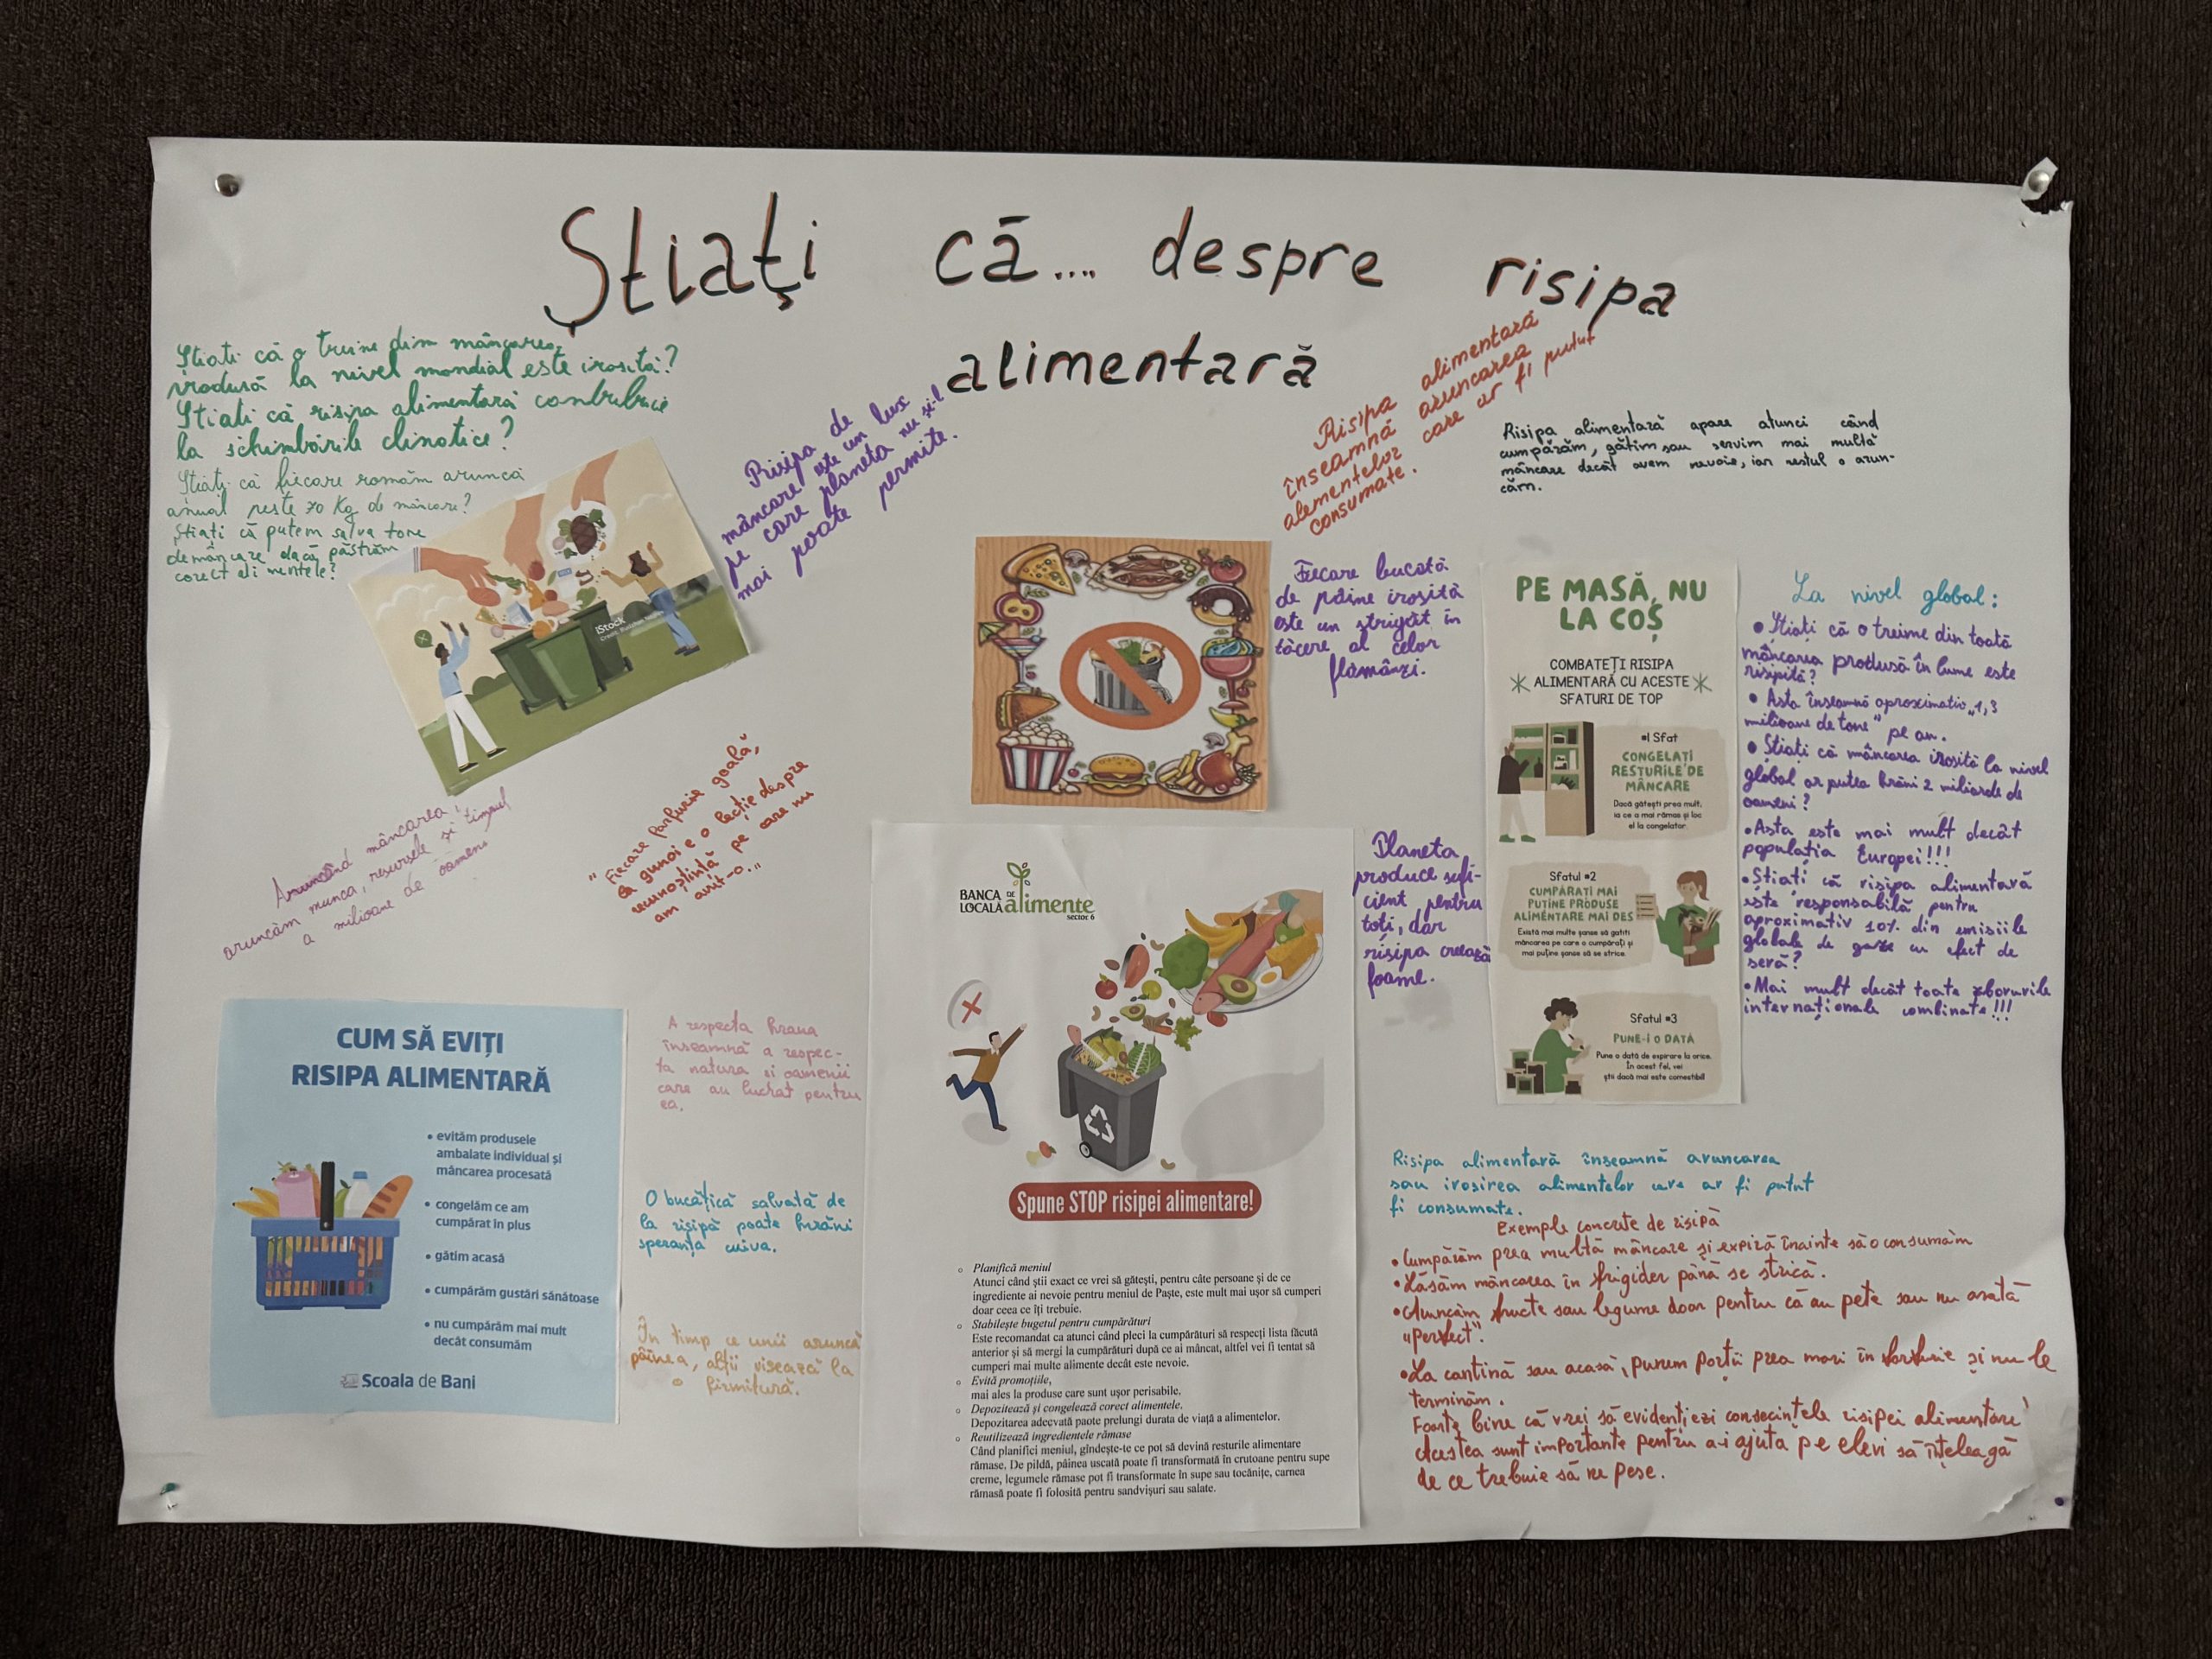 Ştiaţi că.... despre risipa
alimentară
Ştiați că o treime din mâncarea
produsă la nivel mondial este irosită?
Știați că risipa alimentară contribuie
la schimbările climatice?
Știați că fiecare român aruncă
anual peste 70 Kg de mâncare?
Știați că putem salva tone
de mâncare dacă păstrăm
corect alimentele?
iStock
Risipa de
mâncare este un lux
pe care planeta nu și-l
mai poate permite.
Risipa alimentară
înseamnă aruncarea
alementelor care ar fi putut
consumate.
Risipa alimentară apare atunci când
cumpărăm, gătim sau servim mai multă
mâncare decât avem nevoie, iar restul o arun-
căm.
Fiecare bucată
de pâine irosită
este un strigăt în
tăcere al celor
flămânzi.
PE MASĂ, NU
LA COȘ
COMBATEȚI RISIPA
ALIMENTARĂ CU ACESTE
SFATURI DE TOP
#1 Sfat
CONGELAȚI
RESTURILE DE
MÂNCARE
Dacă gătești prea mult,
ia ce a mai rămas și loc
el la congelator.
Sfatul #2
CUMPĂRAȚI MAI
PUȚINE PRODUSE
ALIMENTARE MAI DES
Există mai multe șanse să gatiti
mâncarea pe care o cumpărați și
mai puține șanse să se strice.
Sfatul #3
PUNE-I O DATĂ
Pune o dată de expirare la orice.
În acest fel, vei
ști dacă mai este comestibil!
La nivel global:
• Știați că o treime din toată
mâncarea produsă în lume este
risipită?
• Asta înseamnă aproximativ „1,3
milioane de tone" pe an.
• Știați că mâncarea irosită la nivel
global ar putea hrăni 2 miliarde de
oameni?
• Asta este mai mult decât
populația Europei!!!
• Știați că risipa alimentară
este responsabilă pentru
aproximativ 10% din emisiile
globale de gaze cu efect de
seră?
• Mai mult decât toate zborurile
internaționale combinate!!!
Aruncând mâncarea,
aruncăm munca, resursele și timpul
a milioane de oameni
"Fiecare farfurie goală"
la gunoi e o lecție despre
recunoștință pe care nu
am avut-o..."
Planeta
produce sufi-
cient pentru
toți, dar
risipa creează
foame.
CUM SĂ EVIȚI
RISIPA ALIMENTARĂ
• evităm produsele
ambalate individual și
mâncarea procesată
• congelăm ce am
cumpărat în plus
• gătim acasă
• cumpărăm gustări sănătoase
• nu cumpărăm mai mult
decât consumăm
Scoala de Bani
A respecta hrana
înseamnă a respec-
ta natura și oamenii
care au lucrat pentru
ea.
O bucățică salvată de
la risipă poate hrăni
speranța cuiva.
În timp ce unii aruncă
pâinea, alții visează la
o firmitură.
BANCA DE
LOCALĂ alimente
sector 6
Spune STOP risipei alimentare!
o Planifică meniul
Atunci când știi exact ce vrei să gătești, pentru câte persoane și de ce
ingrediente ai nevoie pentru meniul de Paște, este mult mai ușor să cumperi
doar ceea ce îți trebuie.
o Stabilește bugetul pentru cumpărături
Este recomandat ca atunci când pleci la cumpărături să respecți lista făcută
anterior și să mergi la cumpărături după ce ai mâncat, altfel vei fi tentat să
cumperi mai multe alimente decât este nevoie.
o Evită promoțiile,
mai ales la produse care sunt ușor perisabile.
o Depozitează și congelează corect alimentele.
Depozitarea adecvată paote prelungi durata de viață a alimentelor.
o Reutilizează ingredientele rămase
Când planifici meniul, gîndește-te ce pot să devină resturile alimentare
rămase. De pildă, pâinea uscată poate fi transformată în crutoane pentru supe
creme, legumele rămase pot fi transformate în supe sau tocănițe, carnea
rămasă poate fi folosită pentru sandvișuri sau salate.
Risipa alimentară înseamnă aruncarea
sau irosirea alimentelor care ar fi putut
fi consumate.
Exemple concrete de risipă
• Cumpărăm prea multă mâncare și expiră înainte să o consumăm
• Lăsăm mâncarea în frigider până se strică.
• Aruncăm fructe sau legume doar pentru că au pete sau nu arată
"perfect".
• La cantină sau acasă, punem porții prea mari în farfurie și nu le
terminăm.
Foarte bine că vrei să evidențiezi consecințele risipei alimentare!
Acestea sunt importante pentru a-i ajuta pe elevi să înțeleagă
de ce trebuie să ne pese.